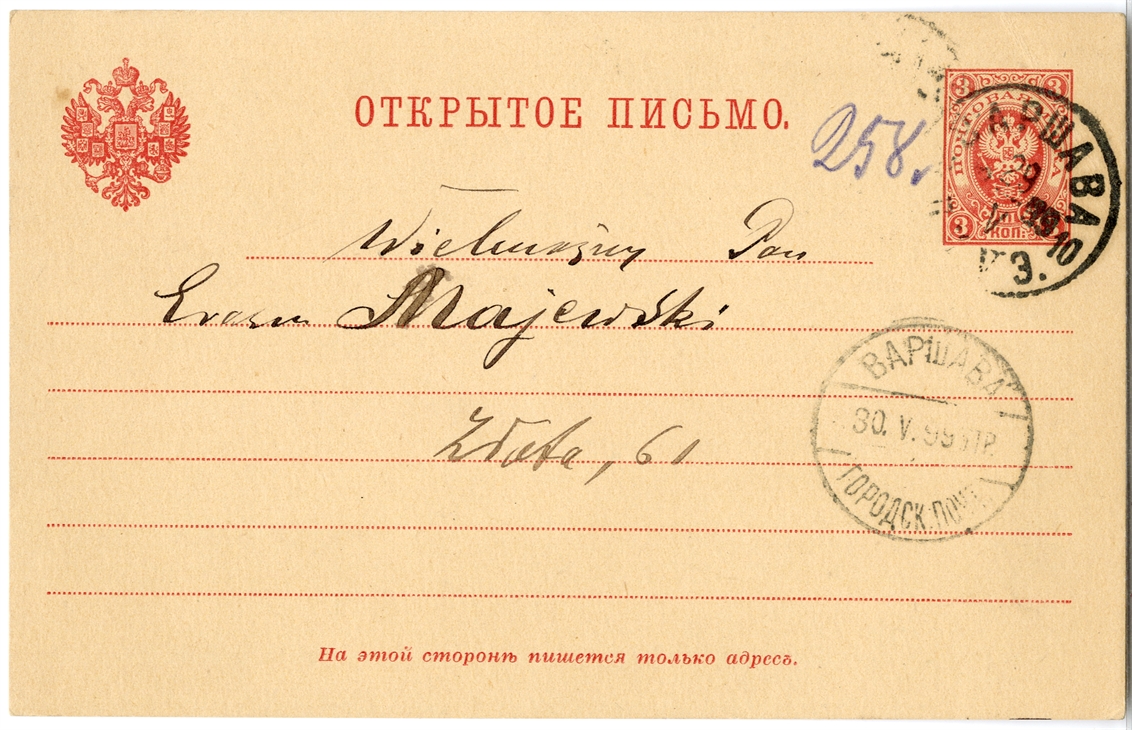 ОТКРЫТОЕ ПИСЬМО.
258.
3 3
ПОЧТОВАЯ МАРКА
3 КОП. 3
ВАРШАВА
V
10
3.
Wielmożny Pan
Erazm Majewski
ВАРШАВА
30. V. 99
ГОРОДСК. ПОЧТ.
Złota, 61
На этой сторонѣ пишется только адресъ.